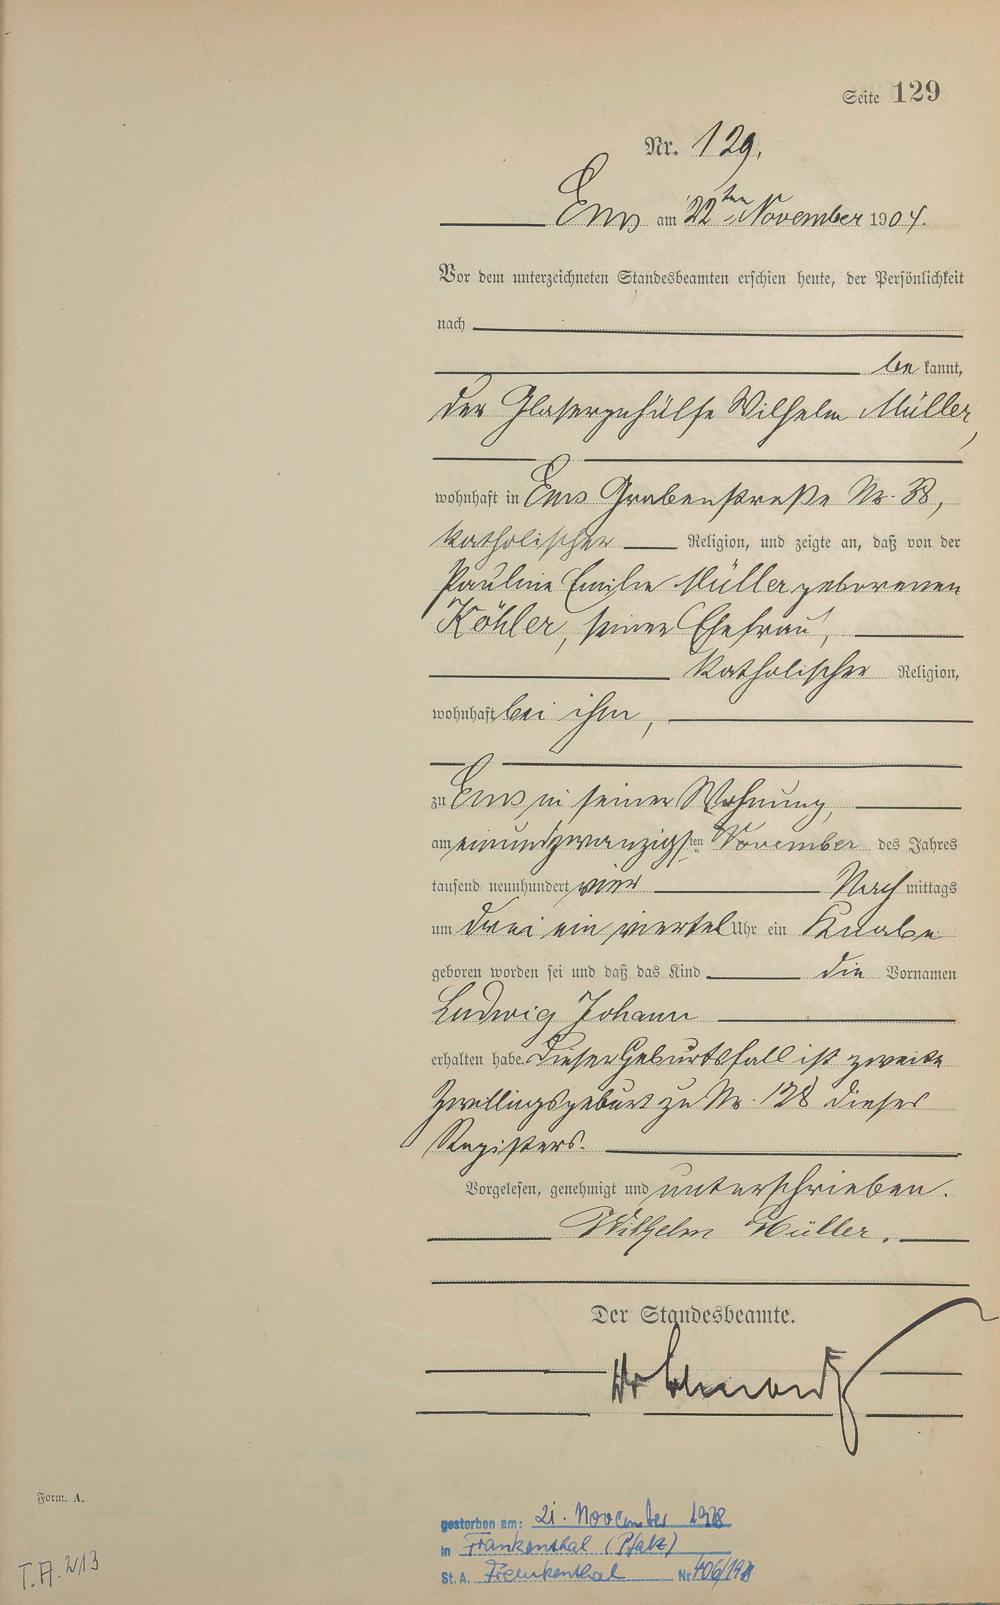 Seite 129
Nr. 129.
Ems am 22ten November 1904.
Vor dem unterzeichneten Standesbeamten erschien heute, der Persönlichkeit
nach
be kannt,
der Glasergehülfe Wilhelm Müller,
wohnhaft in Ems Grabenstraße Nr. 38,
katholischer Religion, und zeigte an, daß von der
Pauline Emilie Müller geborenen
Köhler, seiner Ehefrau,
katholischer Religion,
wohnhaft bei ihm,
zu Ems in seiner Wohnung,
am einundzwanzigsten November des Jahres
tausend neunhundert vier Nach mittags
um drei ein viertel Uhr ein Knabe
geboren worden sei und daß das Kind die Vornamen
Ludwig Johann
erhalten habe. Dieser Geburtsfall ist zweite
Zwillingsgeburt zu Nr. 128 dieses
Registers.
Vorgelesen, genehmigt und unterschrieben.
Wilhelm Müller.
Der Standesbeamte.
Dr
Form. A.
gestorben am: 21. November 1978
in Frankenthal (Pfalz)
St. A. Frankenthal Nr 406/1978
T. A. 2/13